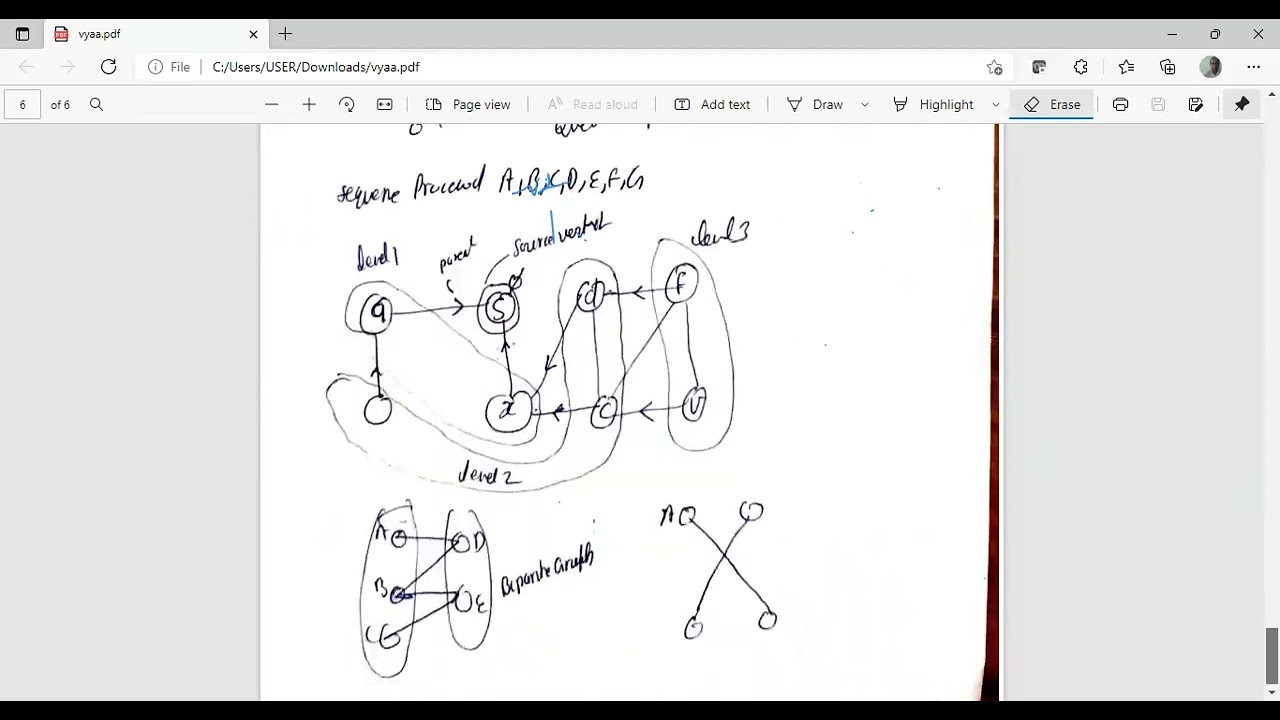 vyaa.pdf
File C:/Users/USER/Downloads/vyaa.pdf
6 of 6 Page view Read aloud Add text Draw Highlight Erase
A,B,C,D,E,F,G
level 1
parent
level 3
a
S
d
F
x
C
V
level 2
A
D
B
E
C
Bipartite Graph
A